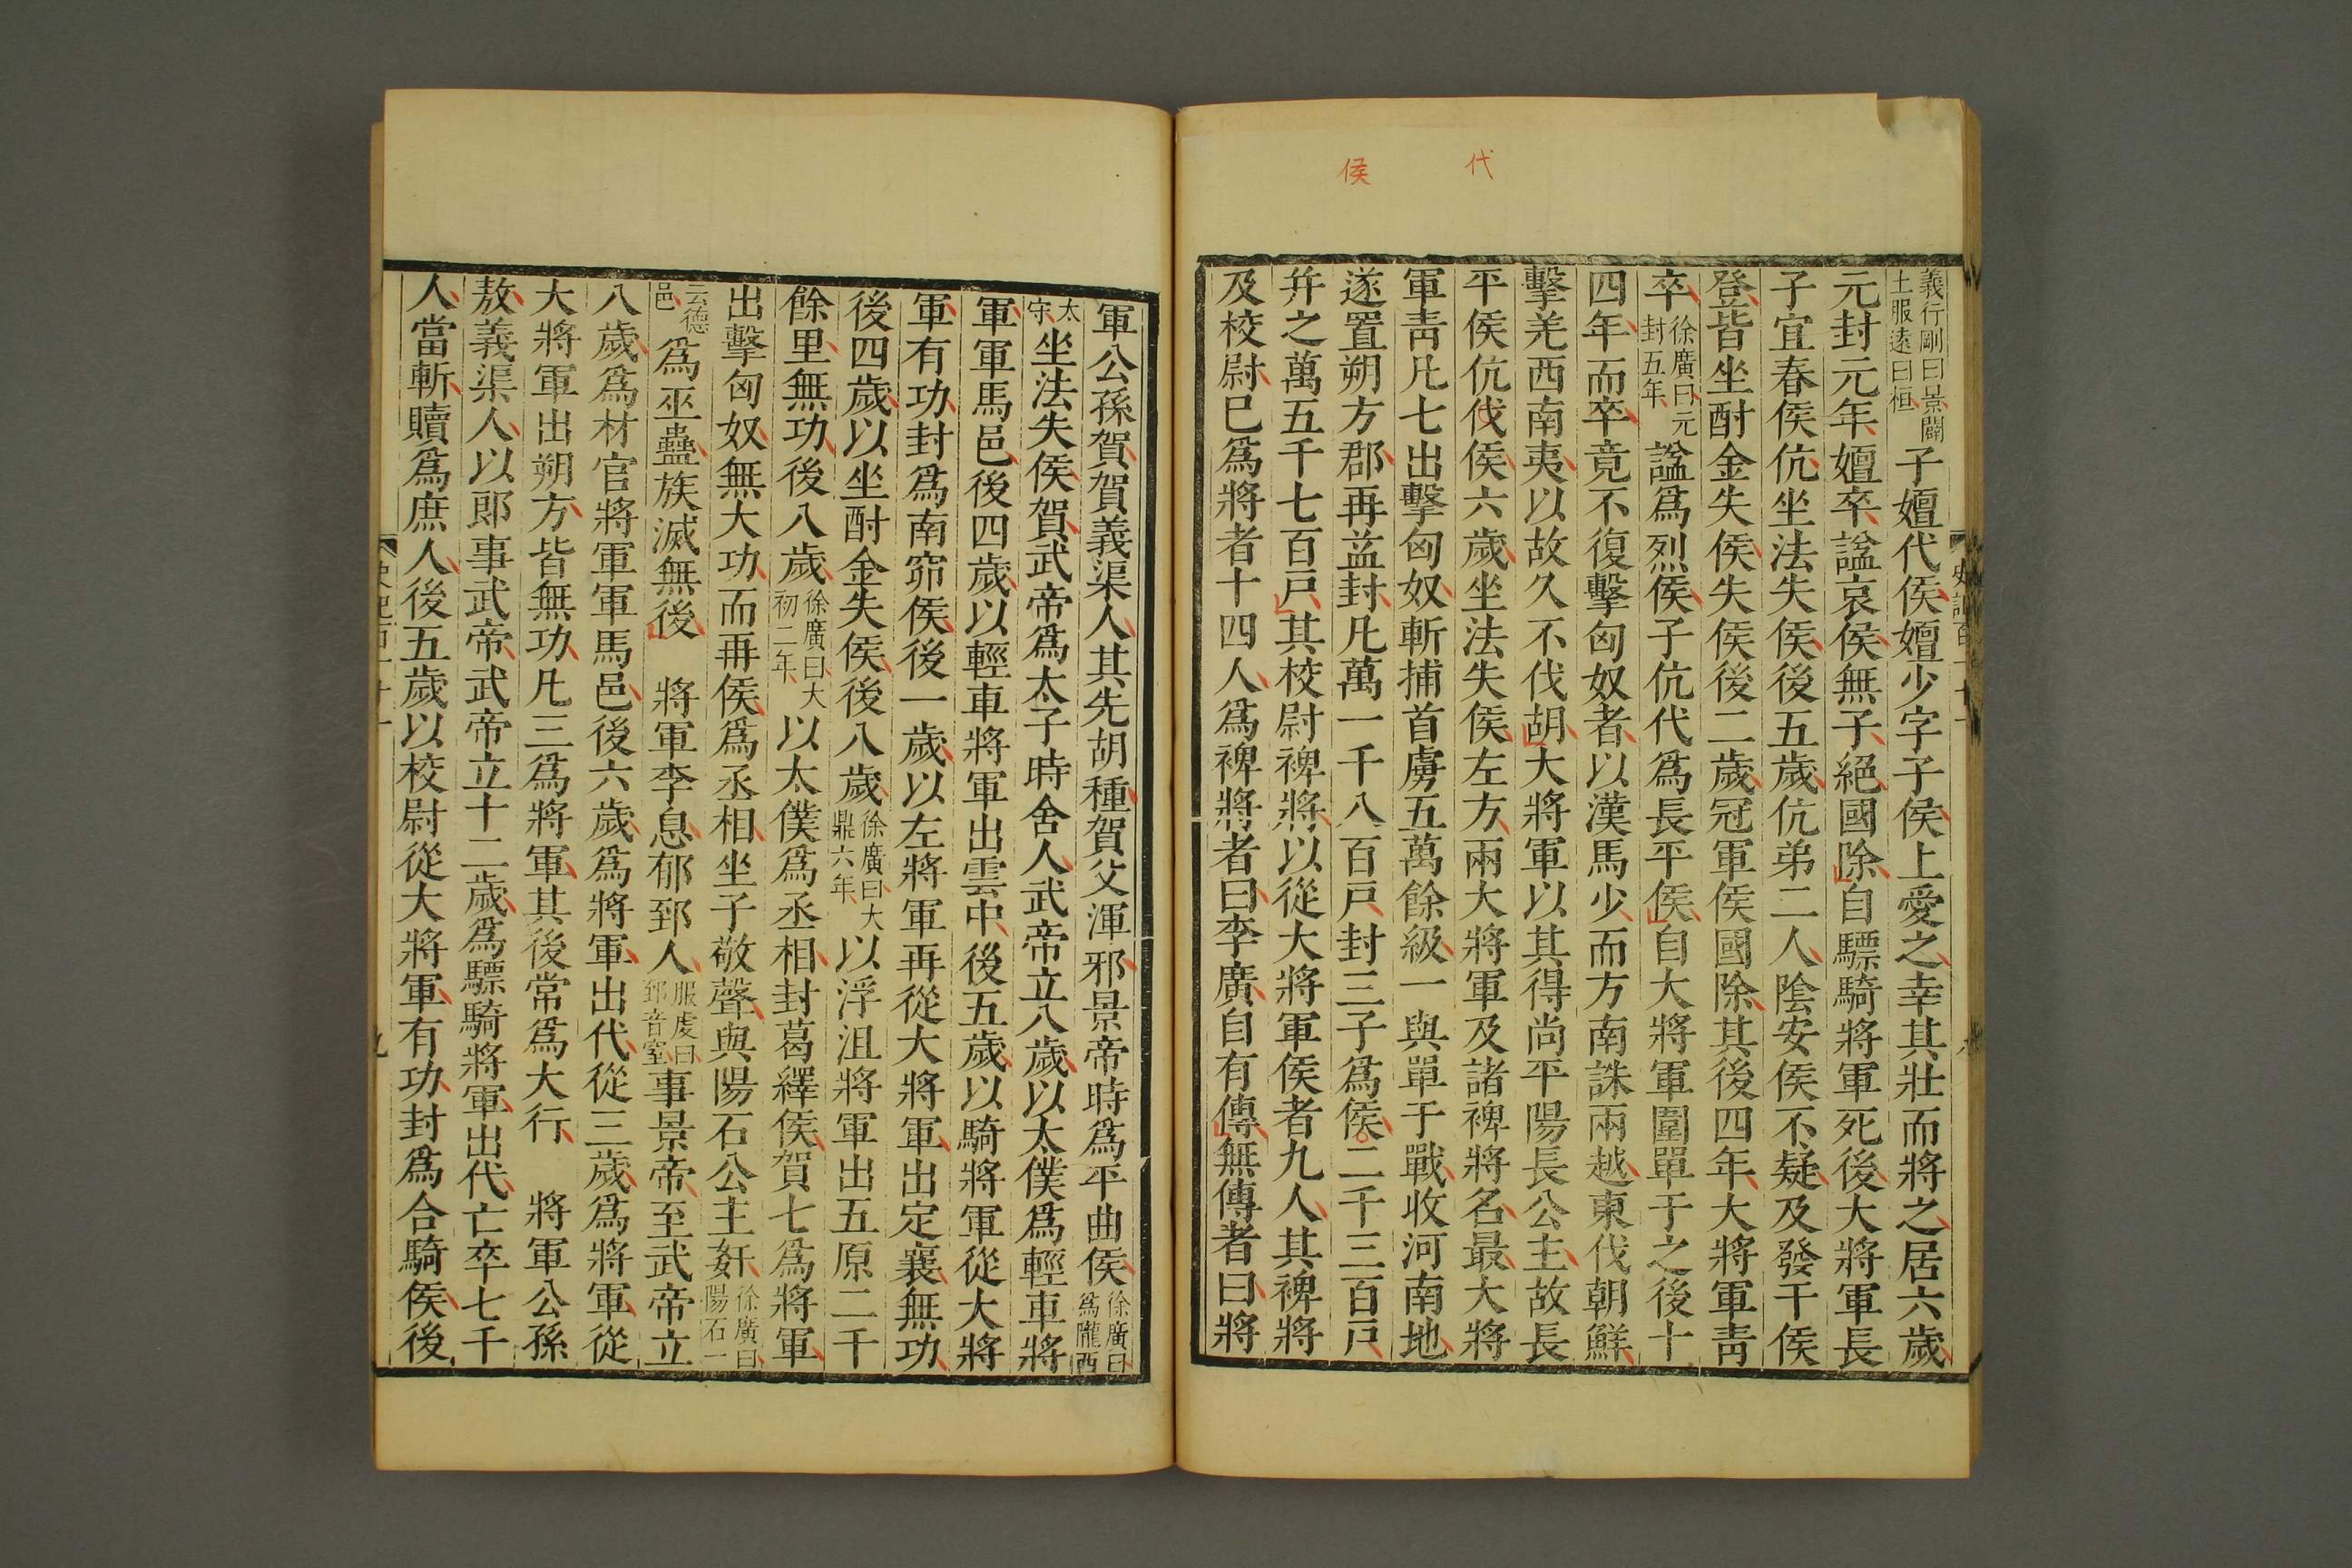 代
侯
義行剛曰景闢
土服遠曰桓
子嬗代侯嬗少字子侯上愛之幸其壯而將之居六歲
元封元年嬗卒諡哀侯無子絕國除自驃騎將軍死後大將軍長
子宜春侯伉坐法失侯後五歲伉弟二人陰安侯不疑及發干侯
登皆坐酎金失侯失侯後二歲冠軍侯國除其後四年大將軍青
卒
徐廣曰元
封五年
諡爲烈侯子伉代爲長平侯自大將軍圍單于之後十
四年而卒竟不復擊匈奴者以漢馬少而方南誅兩越東伐朝鮮
擊羌西南夷以故久不伐胡大將軍以其得尚平陽長公主故長
平侯伉伐侯六歲坐法失侯左方兩大將軍及諸裨將名最大將
軍青凡七出擊匈奴斬捕首虜五萬餘級一與單于戰收河南地
遂置朔方郡再益封凡萬一千八百戸封三子爲侯二千三百戸
幷之萬五千七百戸其校尉裨將以從大將軍侯者九人其裨將
及校尉已爲將者十四人爲裨將者曰李廣自有傳無傳者曰將
軍公孫賀賀義渠人其先胡種賀父渾邪景帝時爲平曲侯
徐廣曰
爲隴西
太
守
坐法失侯賀武帝爲太子時舍人武帝立八歲以太僕爲輕車將
軍軍馬邑後四歲以輕車將軍出雲中後五歲以騎將軍從大將
軍有功封爲南窌侯後一歲以左將軍再從大將軍出定襄無功
後四歲以坐酎金失侯後八歲
徐廣曰大
鼎六年
以浮沮將軍出五原二千
餘里無功後八歲
徐廣曰大
初二年
以太僕爲丞相封葛繹侯賀七爲將軍
出擊匈奴無大功而再侯爲丞相坐子敬聲與陽石公主姦
徐廣曰
陽石一
云德
邑
爲巫蠱族滅無後 將軍李息郁郅人
服虔曰
郅音窒
事景帝至武帝立
八歲爲材官將軍軍馬邑後六歲爲將軍出代從三歲爲將軍從
大將軍出朔方皆無功凡三爲將軍其後常爲大行 將軍公孫
敖義渠人以郎事武帝武帝立十二歲爲驃騎將軍出代亡卒七千
人當斬贖爲庶人後五歲以校尉從大將軍有功封爲合騎侯後